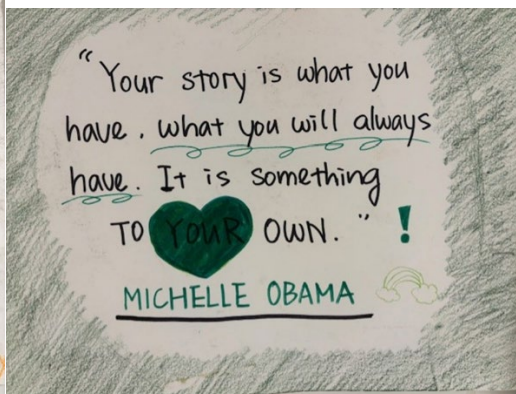 “Your story is what you
have, what you will always
have. It is something
TO YOUR OWN.” !
MICHELLE OBAMA